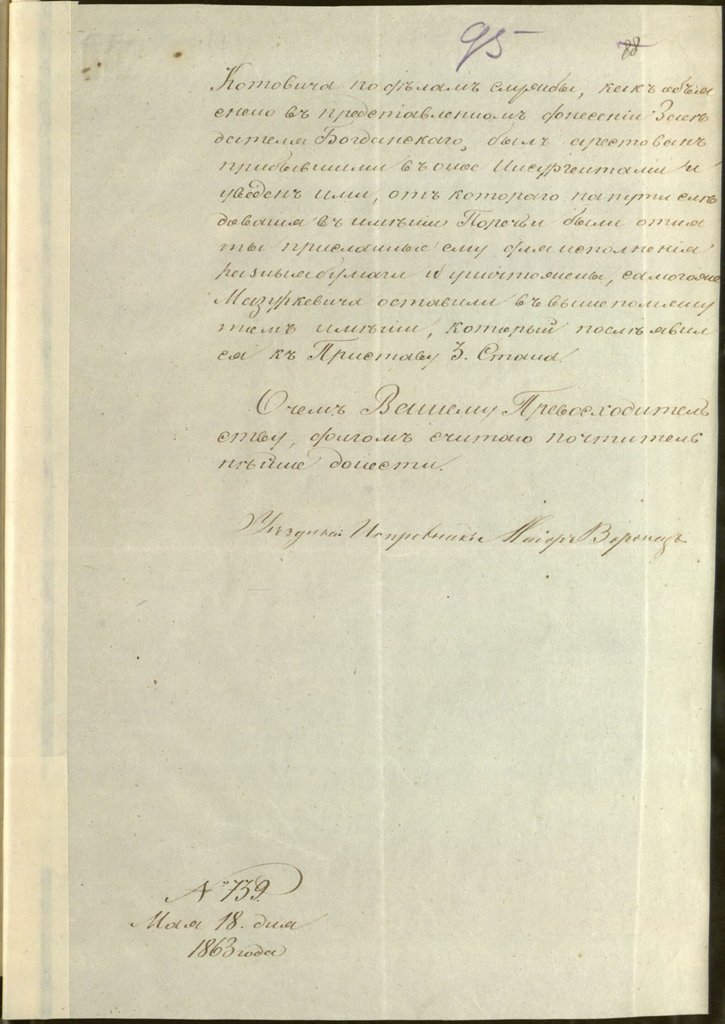 95
88
Котовича по дѣламъ службы, какъ объяс
нено въ представленномъ донесеніи Засѣ
дателя Богданскаго, былъ арестованъ
прибывшими въ оное Инсургентами и
уведенъ ими, отъ котораго на пути слѣ
дованія въ имѣніи Поречьи были отня
ты присланныя ему для исполненія
разныя бумаги и уничтожены, самогоже
Мазуркевича оставили въ вышепомяну
томъ имѣніи, который послѣ явил
ся къ Приставу 3. Стана.
О чемъ Вашему Превосходитель
ству, долгомъ считаю почтитель
нѣйше донести.
Уѣздный Исправникъ Маіоръ
№ 739.
Мая 18. дня
1863 года